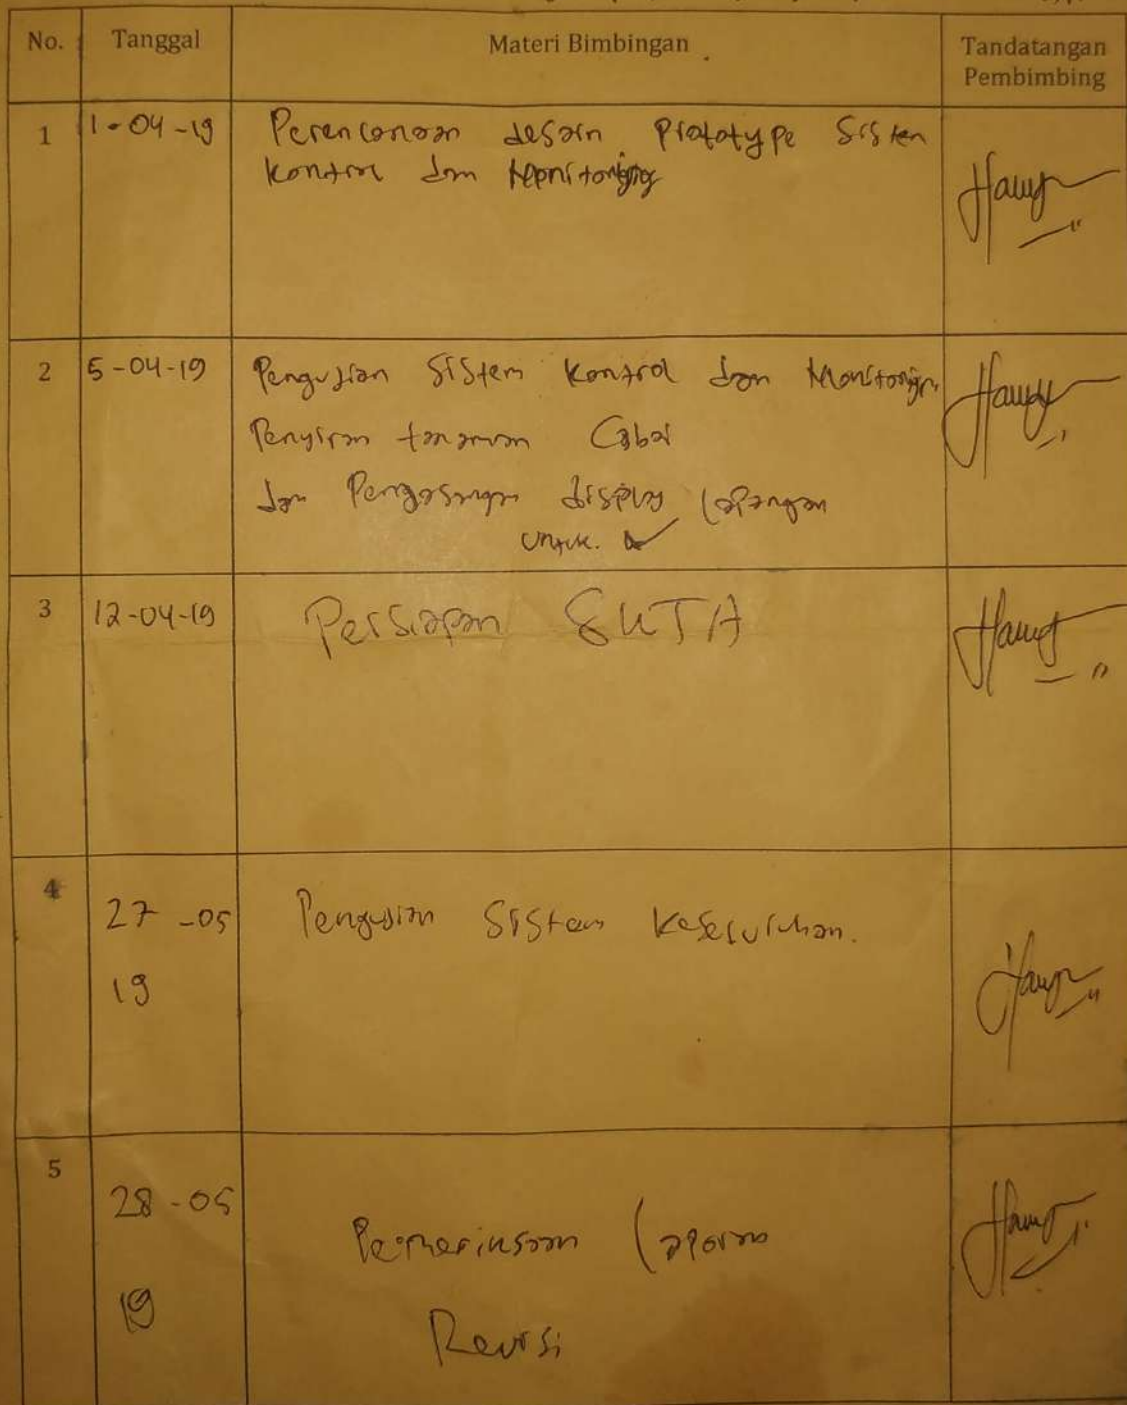 No. Tanggal Materi Bimbingan Tandatangan
Pembimbing
1 1-04-19 Perencanaan desain Prototype Sistem
Kontrol dan Monitoring
2 5-04-19 Pengujian Sistem Kontrol dan Monitoring
Penyiran tanaman Cabai
dan Pengasangan display lapangan
untuk.
3 12-04-19 Persiapan SUTA
4
27-05 Pengujian Sistem Keseluruhan.
19
5
28-05
Pemeriksaan laporan
19
Revisi